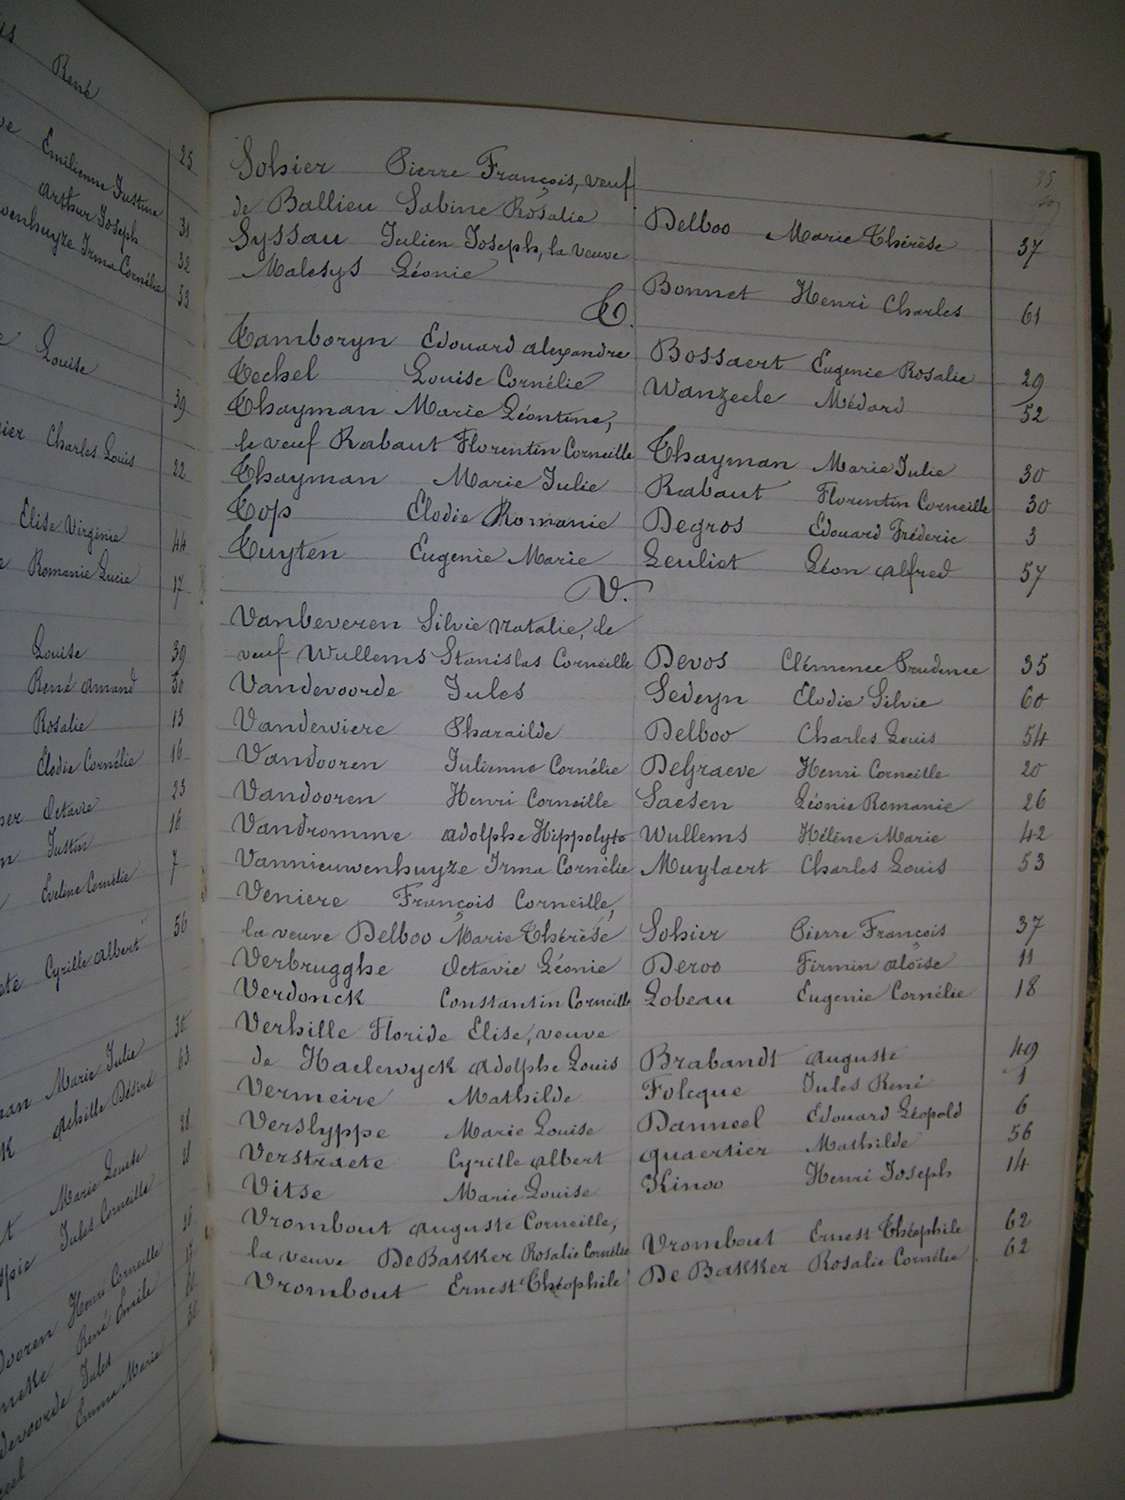 René
25
Emilienne Justine
Arthur Joseph 31
Irma Cornélie 32
53
Louise
39
Charles Louis
22
Elise Virginie
44
Romanie Lucie
17
Louise 39
René Amand 50
Rosalie 13
Elodie Cornélie 16
23
Octavie 16
Justin 7
Eveline Cornélie
56
Cyrille Albert
Marie Julie 63
Achille Désiré
Marie Louise
Jules Corneille
Henri Corneille
René Emile
Jules
Emma Marie
Sohier Pierre François, veuf
de Ballieu Sabine Rosalie Delboo Marie Thérèse 37
Syssau Julien Joseph, la veuve
Malesys Léonie Bonnet Henri Charles 61
T.
Tamboryn Edouard Alexandre Bossaert Eugenie Rosalie 29
Teckel Louise Cornélie Wanzeele Médard 52
Thayman Marie Léontine,
le veuf Rabaut Florentin Corneille Thayman Marie Julie 30
Thayman Marie Julie Rabaut Florentin Corneille 30
Top Elodie Romanie Degros Edouard Fréderic 3
Tuyten Eugenie Marie Leuliet Léon Alfred 57
V.
Vanbeveren Silvie Natalie, le
veuf Wullems Stanislas Corneille Devos Clémence Prudence 35
Vandevoorde Jules Sedeyn Elodie Silvie 60
Vandeviere Pharaïlde Delboo Charles Louis 54
Vandooren Julienne Cornélie Degraeve Henri Corneille 20
Vandooren Henri Corneille Saesen Léonie Romanie 26
Vandromme Adolphe Hippolyte Wullems Hélène Marie 42
Vannieuwenhuyze Irma Cornélie Muylaert Charles Louis 53
Veniere François Corneille,
la veuve Delboo Marie Thérèse Sohier Pierre François 37
Verbrugghe Octavie Léonie Deroo Firmin Aloïse 11
Verdonck Constantin Corneille Lobeau Eugenie Cornélie 18
Verhille Floride Elise, veuve
de Haelewyck Adolphe Louis Brabandt Auguste 49
Vermeire Mathilde Folcque Jules René 1
Verslyppe Marie Louise Danneel Edouard Léopold 6
Verstraete Cyrille Albert Quaertier Mathilde 56
Vitse Marie Louise Kinoo Henri Joseph 14
Vrombout Auguste Corneille,
la veuve De Bakker Rosalie Cornélie Vrombout Ernest Théophile 62
Vrombout Ernest Théophile De Bakker Rosalie Cornélie 62